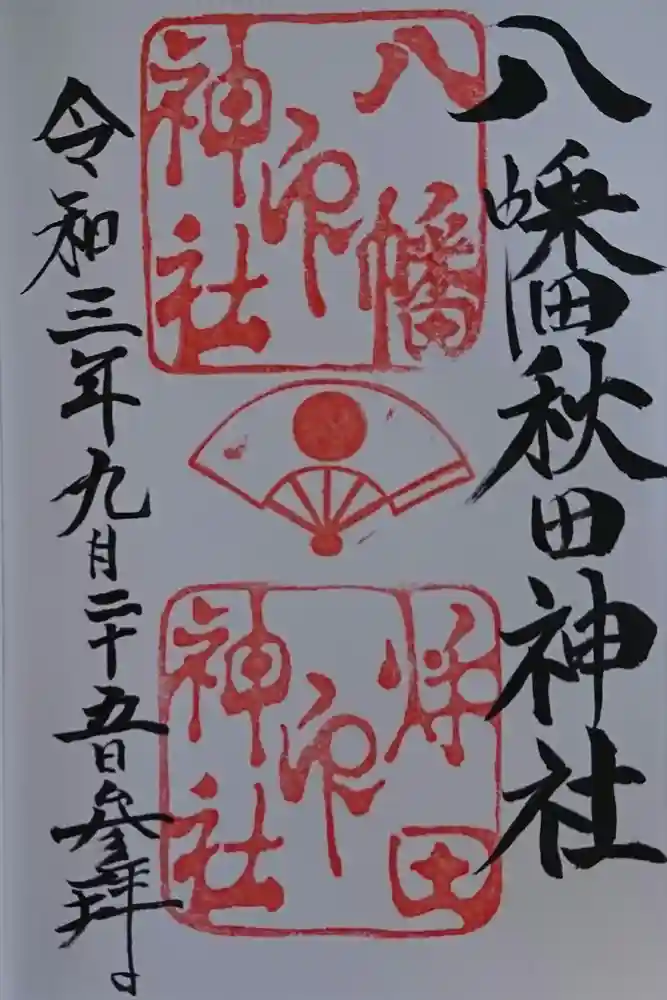 八幡秋田神社
八幡神社印
秋田神社印
令和三年九月二十五日参拝